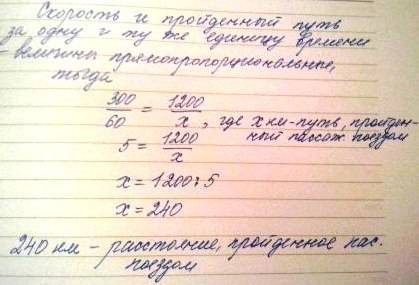 Скорость и пройденный путь
за одну и ту же единицу времени
- величины прямопропорциональные,
тогда
300/60 = 1200/x , где x км - путь, пройден-
ный пассаж. поездом
5 = 1200/x
x = 1200 : 5
x = 240
240 км - расстояние, пройденное пас.
поездом